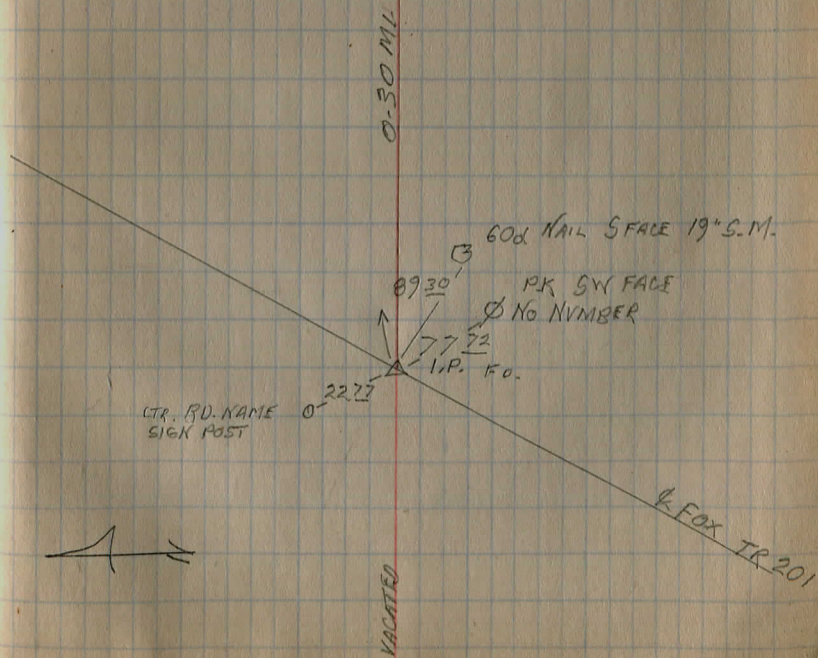 0-30 ML
60d NAIL S FACE 19" S.M.
8930
PK SW FACE
NO NUMBER
7772
I.P. FD.
2277
CTR. RD. NAME
SIGN POST
℄ FOX TR 201
VACATED